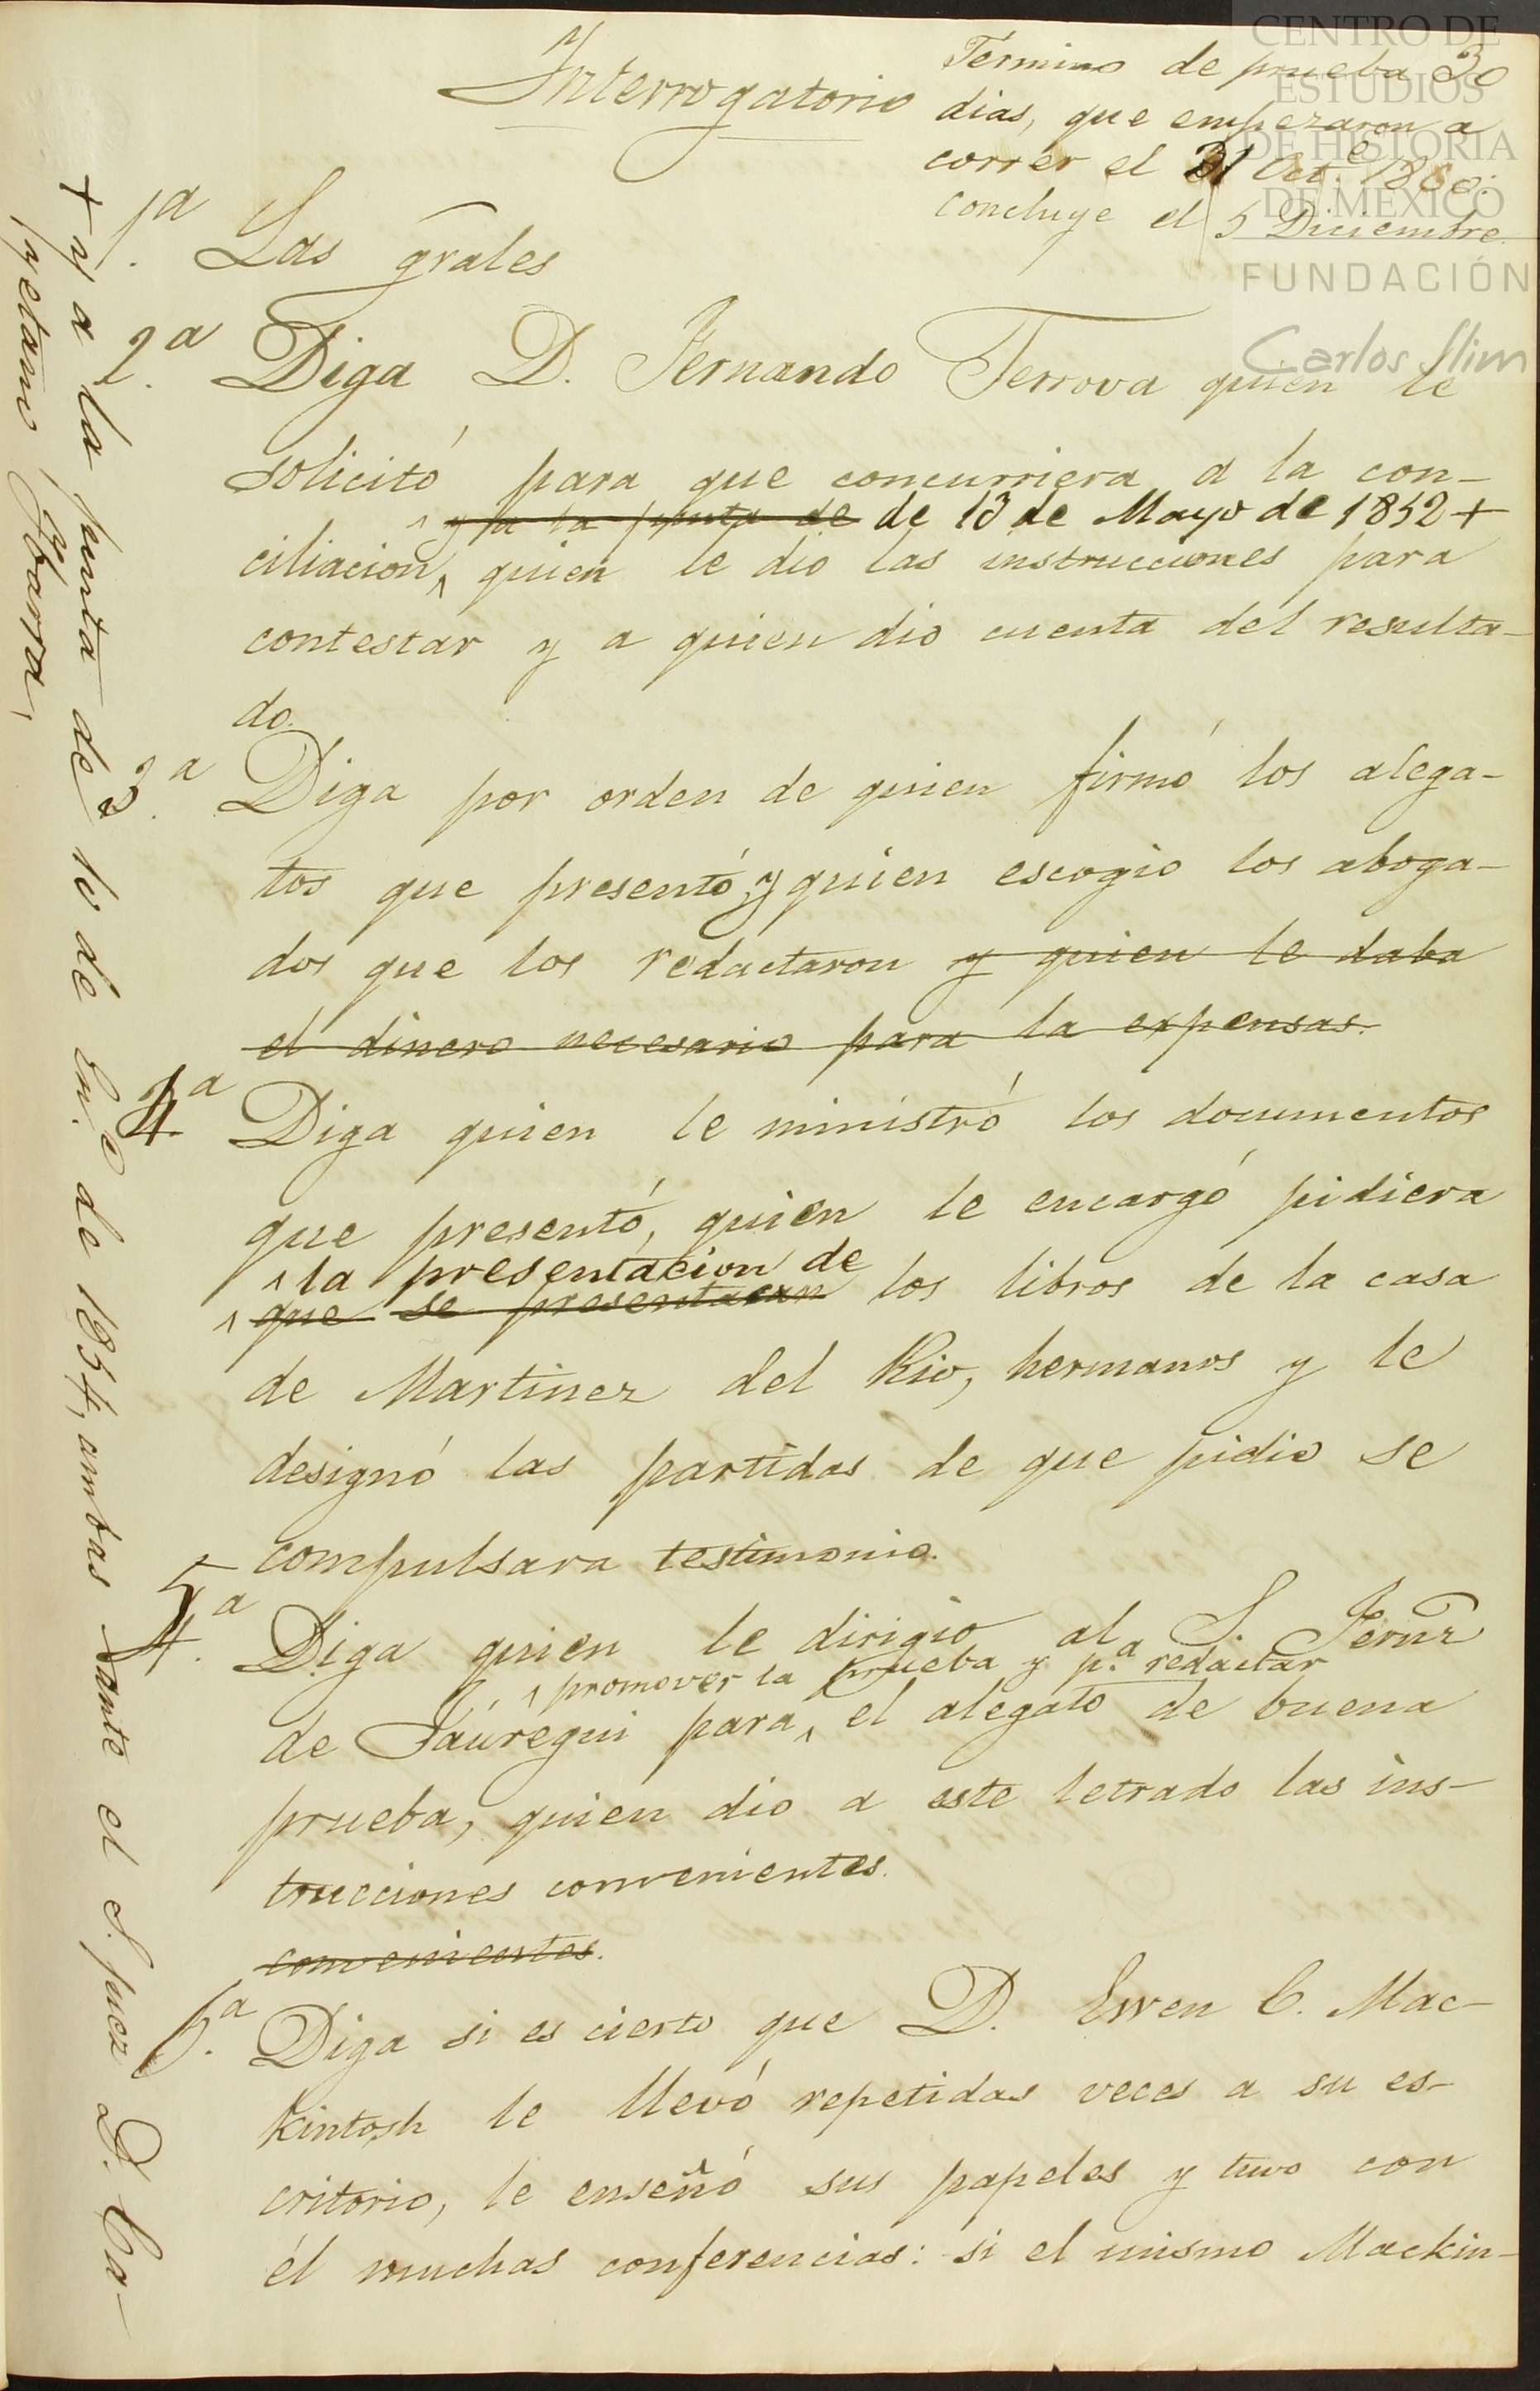 CENTRO DE
ESTUDIOS
DE HISTORIA
DE MÉXICO
FUNDACIÓN
Carlos Slim
Interrogatorio
Término de prueba 30
dias, que empezaron a
correr el 31 Oct.e 1860:
concluye el 5 Diciembre
1.a Las grales
2.a Diga D. Fernando Ferrova quien le
solicitó para que concurriera a la con-
y a la junta de de 13 de Mayo de 1852 +
ciliacion, quien le dio las instrucciones para
contestar y a quien dio cuenta del resulta-
do.
3.a Diga por orden de quien firmó los alega-
tos que presentó, y quien escogio los aboga-
dos que los redactaron y quien le daba
el dinero necesario para la expensas.
4.a Diga quien le ministró los documentos
que presentó, quien le encargó pidiera
la presentacion de
que se presentaran los libros de la casa
de Martinez del Rio, hermanos y le
designó las partidas de que pidio se
compulsara testimonio.
5.a Diga quien le dirigio al S. Fernz
promover la prueba y p.a redactar
de Jáuregui para el alegato de buena
prueba, quien dio a este letrado las ins-
trucciones convenientes.
convenientes.
6.a Diga si es cierto que D. Ewen C. Mac-
kintosh le llevó repetidas veces a su es-
critorio, le enseñó sus papeles y tuvo con
él muchas conferencias: si el mismo Mackin-
+ y a la junta de 16 de En.o de 1854, ambas ante el S. juez D. Ca-
yetano Ybarra,